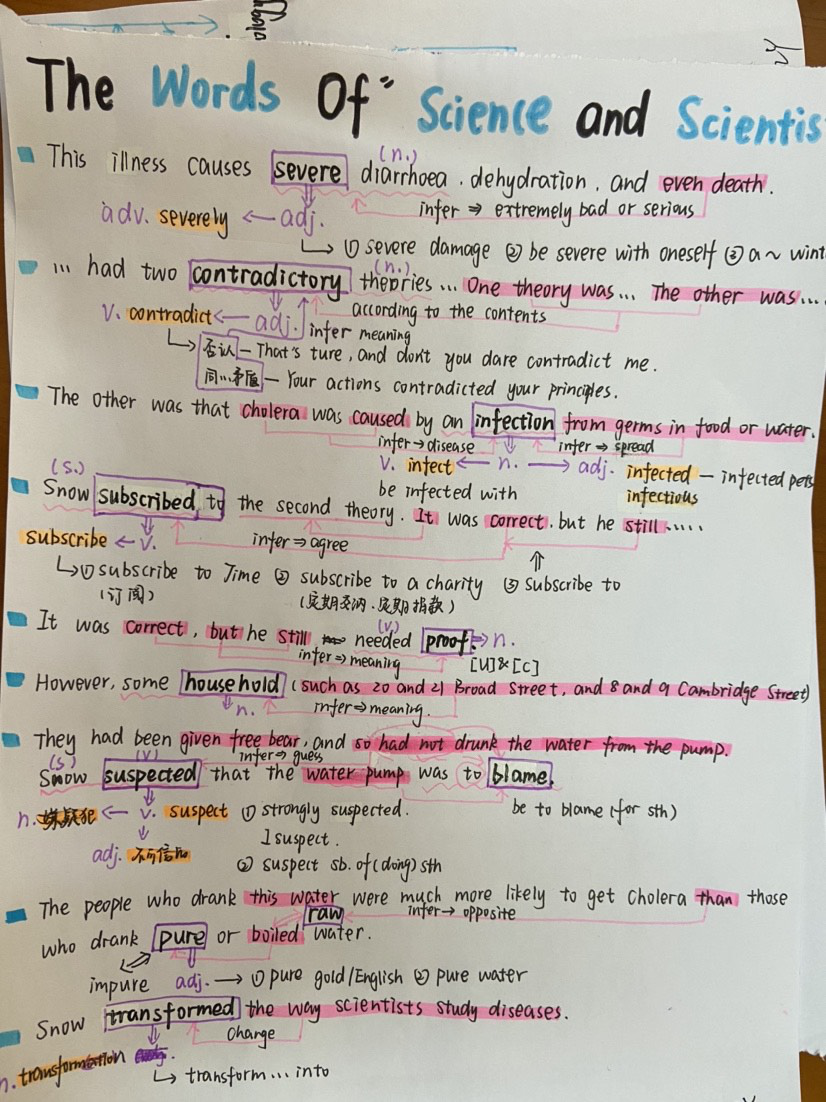 The Words Of " Science and Scientis
This illness causes severe diarrhoea, dehydration, and even death.
(n.)
adv. severely ← adj.
infer ⇒ extremely bad or serious
↳ ① severe damage ② be severe with oneself ③ a ~ wint
... had two contradictory theories ... One theory was... The other was...
(n.)
v. contradict ← adj.
according to the contents
infer meaning
↳ 否认 – That's ture, and don't you dare contradict me.
同...矛盾 – Your actions contradicted your principles.
The other was that cholera was caused by an infection from germs in food or water.
infer → disease
infer ⇒ spread
v. infect ← n. → adj. infected – infected pets
be infected with
infectious
(S.)
Snow subscribed to the second theory. It was correct, but he still .....
subscribe ← v.
infer ⇒ agree
↳ ① subscribe to Time ② subscribe to a charity ③ subscribe to
(订阅)
(定期交纳、定期捐款)
It was correct, but he still needed proof. ⇒ n.
(v)
infer ⇒ meaning
[U]&[C]
However, some household (such as 20 and 21 Broad Street, and 8 and 9 Cambridge Street)
n.
infer ⇒ meaning.
They had been given free bear, and so had not drunk the water from the pump.
infer ⇒ guess
(S) (V)
Snow suspected that the water pump was to blame.
n. 嫌疑犯 ← v. suspect ① strongly suspected.
be to blame (for sth)
I suspect.
adj. 不可信的
② suspect sb. of (doing) sth
The people who drank this water were much more likely to get cholera than those
raw
infer → opposite
who drank pure or boiled water.
impure adj. → ① pure gold/English ② pure water
Snow transformed the way scientists study diseases.
change
n. transformation
↳ transform... into